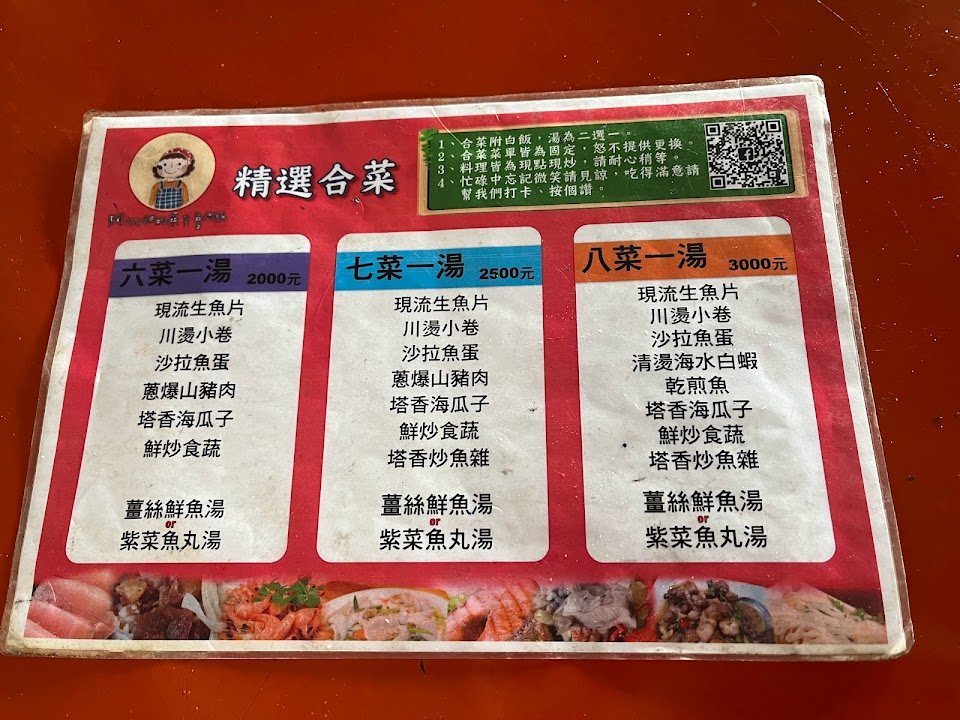 精選合菜
1、合菜附白飯，湯為二選一。
2、合菜菜單皆為固定，恕不提供更換。
3、料理皆為現點現炒，請耐心稍等。
4、忙碌中忘記微笑請見諒，吃得滿意請
幫我們打卡、按個讚。
六菜一湯 2000元
現流生魚片
川燙小卷
沙拉魚蛋
蔥爆山豬肉
塔香海瓜子
鮮炒食蔬
薑絲鮮魚湯
or
紫菜魚丸湯
七菜一湯 2500元
現流生魚片
川燙小卷
沙拉魚蛋
蔥爆山豬肉
塔香海瓜子
鮮炒食蔬
塔香炒魚雜
薑絲鮮魚湯
or
紫菜魚丸湯
八菜一湯 3000元
現流生魚片
川燙小卷
沙拉魚蛋
清燙海水白蝦
乾煎魚
塔香海瓜子
鮮炒食蔬
塔香炒魚雜
薑絲鮮魚湯
or
紫菜魚丸湯